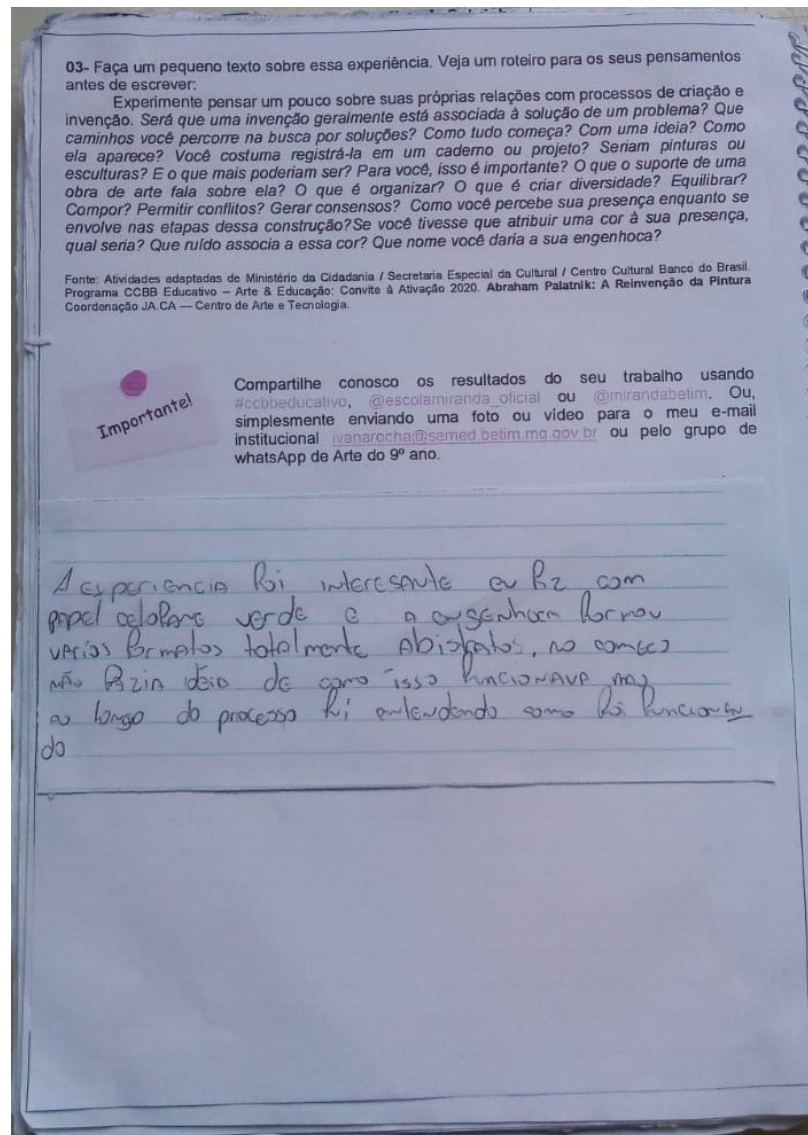 03- Faça um pequeno texto sobre essa experiência. Veja um roteiro para os seus pensamentos
antes de escrever:
Experimente pensar um pouco sobre suas próprias relações com processos de criação e
invenção. Será que uma invenção geralmente está associada à solução de um problema? Que
caminhos você percorre na busca por soluções? Como tudo começa? Com uma ideia? Como
ela aparece? Você costuma registrá-la em um caderno ou projeto? Seriam pinturas ou
esculturas? E o que mais poderiam ser? Para você, isso é importante? O que o suporte de uma
obra de arte fala sobre ela? O que é organizar? O que é criar diversidade? Equilibrar?
Compor? Permitir conflitos? Gerar consensos? Como você percebe sua presença enquanto se
envolve nas etapas dessa construção?Se você tivesse que atribuir uma cor à sua presença,
qual seria? Que ruído associa a essa cor? Que nome você daria a sua engenhoca?
Fonte: Atividades adaptadas do Ministério da Cidadania / Secretaria Especial da Cultural / Centro Cultural Banco do Brasil.
Programa CCBB Educativo – Arte & Educação: Convite à Ativação 2020. Abraham Palatnik: A Reinvenção da Pintura
Coordenação JA.CA — Centro de Arte e Tecnologia.
Importante!
Compartilhe conosco os resultados do seu trabalho usando
#ccbbeducativo, @escolamiranda_oficial ou @mirandabetim. Ou,
simplesmente enviando uma foto ou vídeo para o meu e-mail
institucional ivanarocha@semed.betim.mg.gov.br ou pelo grupo de
whatsApp de Arte do 9º ano.
A experiencia foi interesante eu fiz com
papel celofane verde e a engenhoca formou
varios formatos totalmente abistratos, no começo
não fazia ideia de como isso funcionava mas
ao longo do processo fui entendendo como foi funcionan
do